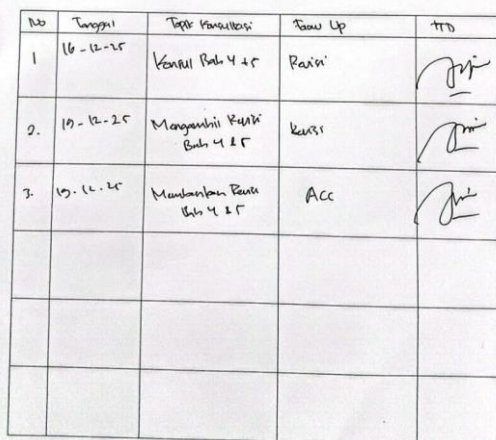 No Tanggal Topik Konsultasi Follow Up TTD
1 16-12-25 Konsul Bab 4 + 5 Revisi
2. 19-12-25 Mengambil Revisi Bab 4 & 5 Revisi
3. 19-12-25 Revisi Bab 4 & 5 ACC